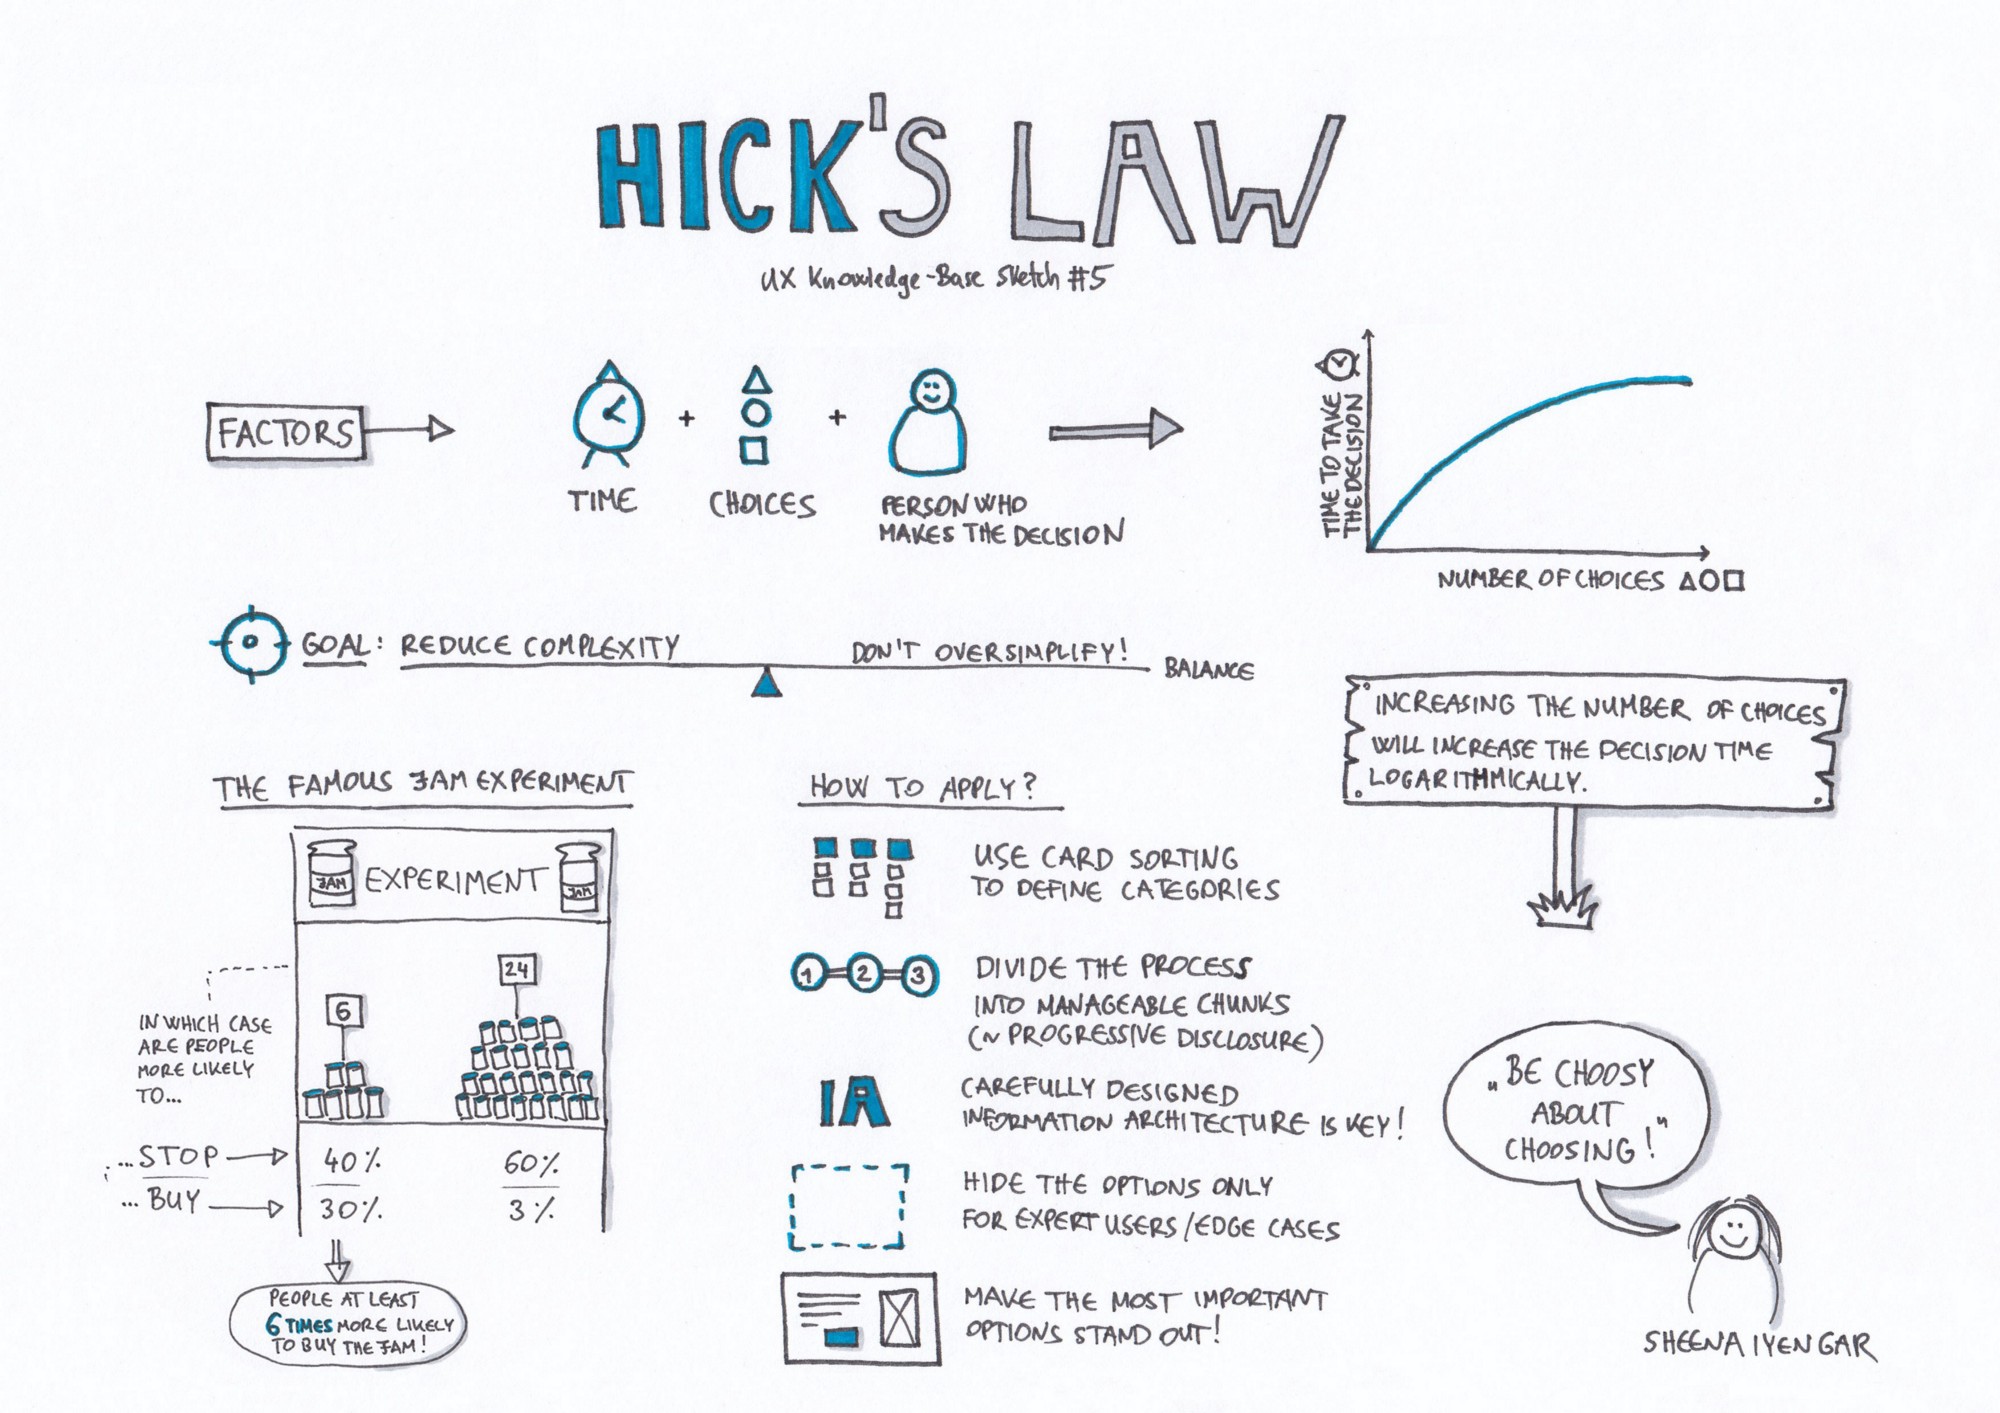 HICK'S LAW
UX Knowledge-Base Sketch #5
FACTORS
+
+
TIME
CHOICES
PERSON WHO
MAKES THE DECISION
TIME TO TAKE
THE DECISION
NUMBER OF CHOICES
GOAL: REDUCE COMPLEXITY
DON'T OVERSIMPLIFY!
BALANCE
INCREASING THE NUMBER OF CHOICES
WILL INCREASE THE DECISION TIME
LOGARITHMICALLY.
THE FAMOUS JAM EXPERIMENT
JAM
EXPERIMENT
JAM
6
24
IN WHICH CASE
ARE PEOPLE
MORE LIKELY
TO...
...STOP
40%
60%
...BUY
30%
3%
PEOPLE AT LEAST
6 TIMES MORE LIKELY
TO BUY THE JAM!
HOW TO APPLY?
USE CARD SORTING
TO DEFINE CATEGORIES
1 2 3
DIVIDE THE PROCESS
INTO MANAGEABLE CHUNKS
(~ PROGRESSIVE DISCLOSURE)
IA
CAREFULLY DESIGNED
INFORMATION ARCHITECTURE IS KEY!
HIDE THE OPTIONS ONLY
FOR EXPERT USERS/EDGE CASES
MAKE THE MOST IMPORTANT
OPTIONS STAND OUT!
„BE CHOOSY
ABOUT
CHOOSING!"
SHEENA IYENGAR